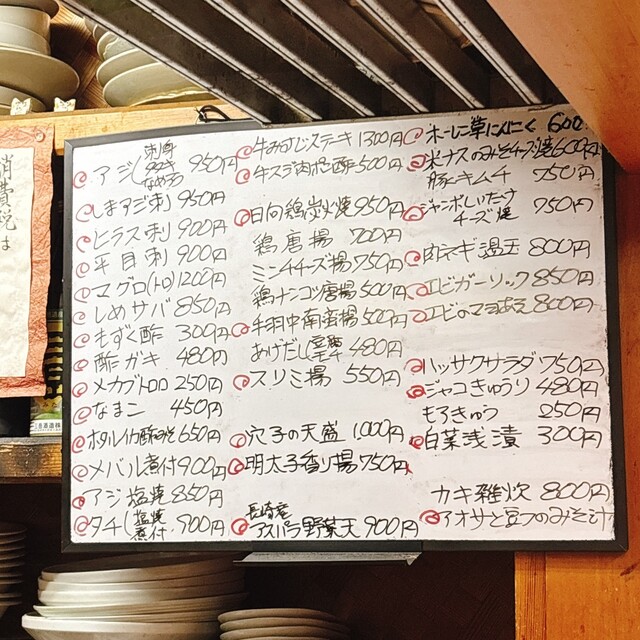 消費税は
アジ 刺身 タタキ なめろう 950円
しまアジ刺 950円
ヒラス刺 900円
平目刺 900円
マグロ(トロ) 1200円
しめサバ 850円
もずく酢 300円
酢ガキ 480円
メカブトロロ 250円
なまこ 450円
ホタルイカ酢みそ 650円
メバル煮付 900円
アジ塩焼 850円
タチ 塩焼 煮付 900円
牛みすじステーキ 1300円
牛スジ肉ポン酢 500円
日向鶏炭火焼 950円
鶏唐揚 700円
ミンチチーズ揚 750円
鶏ナンコツ唐揚 500円
手羽中南蛮揚 500円
あげだし 480円
スリミ揚 550円
穴子の天盛 1,000円
明太子香り揚 750円
長崎産
アスパラ野菜天 900円
ホーレン草にんにく 600
米ナスのみそチーズ焼 600円
豚キムチ 750円
ジャンボしいたけ
チーズ焼 750円
肉ネギ温玉 800円
エビガーリック 850円
エビのマヨあえ 800円
ハッサクサラダ 750円
ジャコきゅうり 480円
もろきゅう 250円
白菜浅漬 300円
カキ雑炊 800円
アオサと豆フのみそ汁